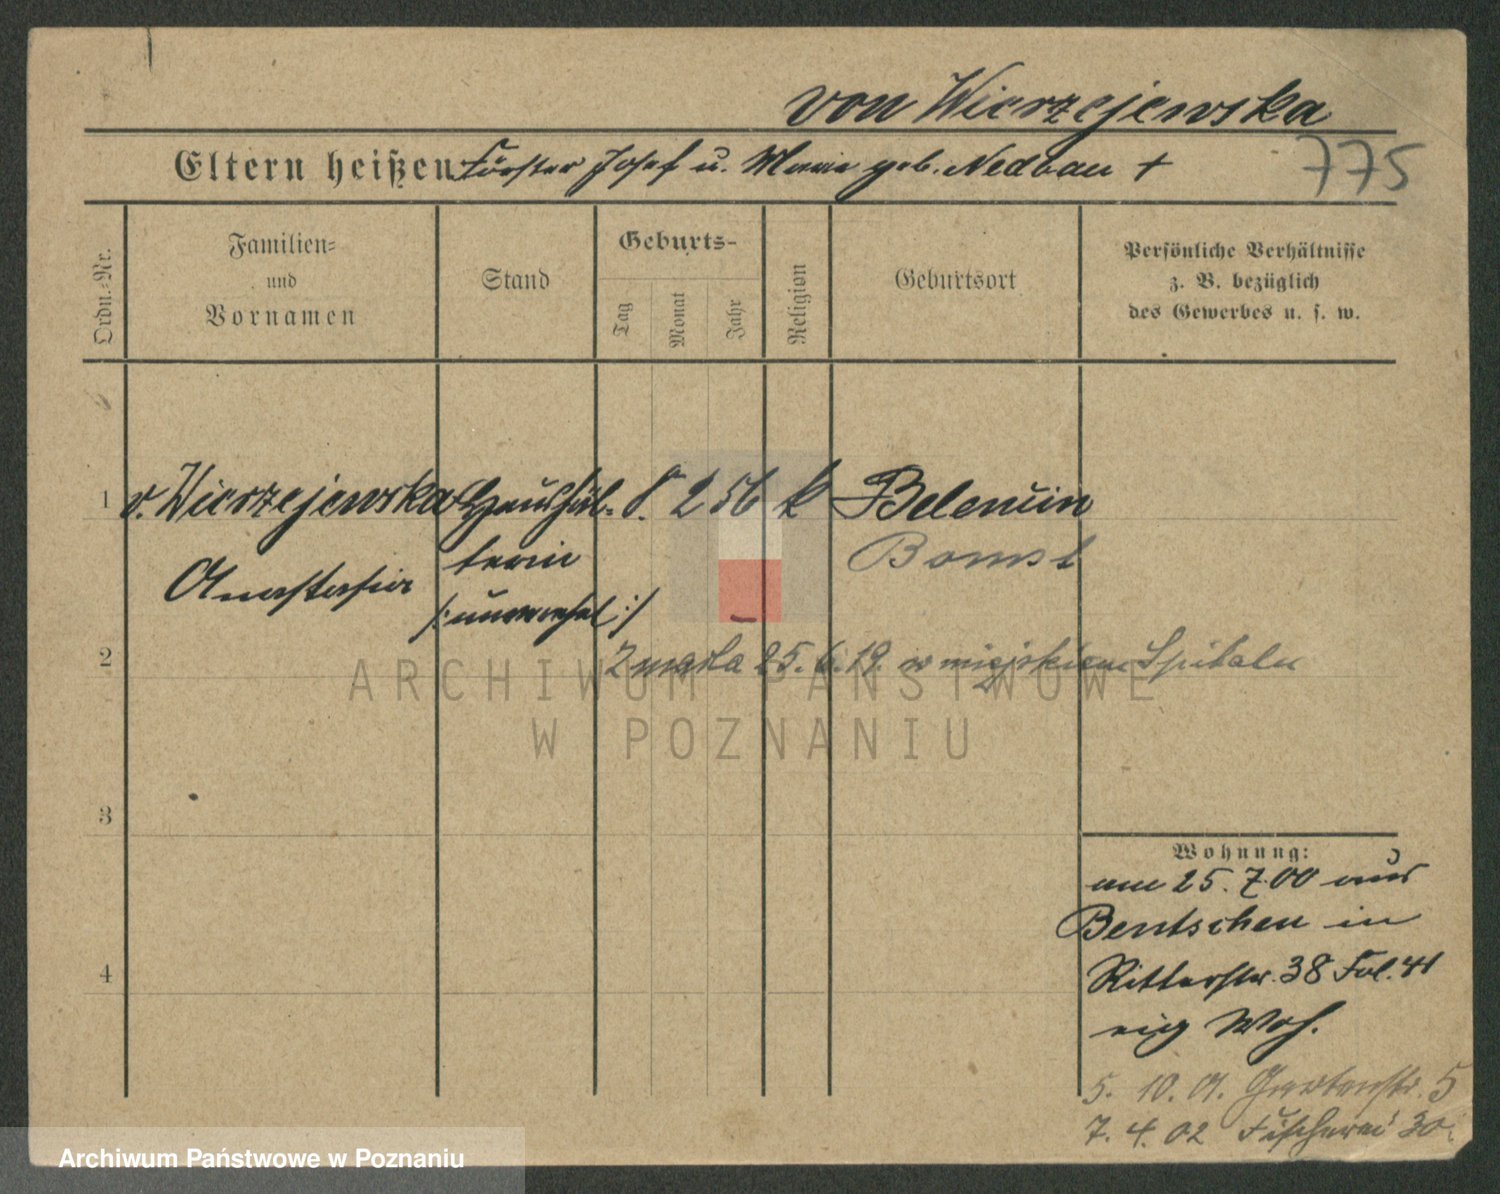 von Wierzejewska
Eltern heißen Förster Josef u. Marie geb. Nedbau +
775
Ordn.-Nr.
Familien-
und
Vornamen
Stand
Geburts-
Tag
Monat
Jahr
Religion
Geburtsort
Persönliche Verhältnisse
z. B. bezüglich
des Gewerbes u. s. w.
1 v. Wierzejewska Haushäl- 8. 2 56 k Belencin
Anastasia terin Bomst
/: unverehel :/
2 Zmarła 25. 6. 19. w miejskiem Spitalu
ARCHIWUM PAŃSTWOWE
W POZNANIU
3
Wohnung:
am 25. 7. 00 aus
Bentschen in
Ritterstr. 38
4
eig Woh.
5. 10. 01. Gartenstr. 5
7. 4. 02 Fischerei 30.
Archiwum Państwowe w Poznaniu